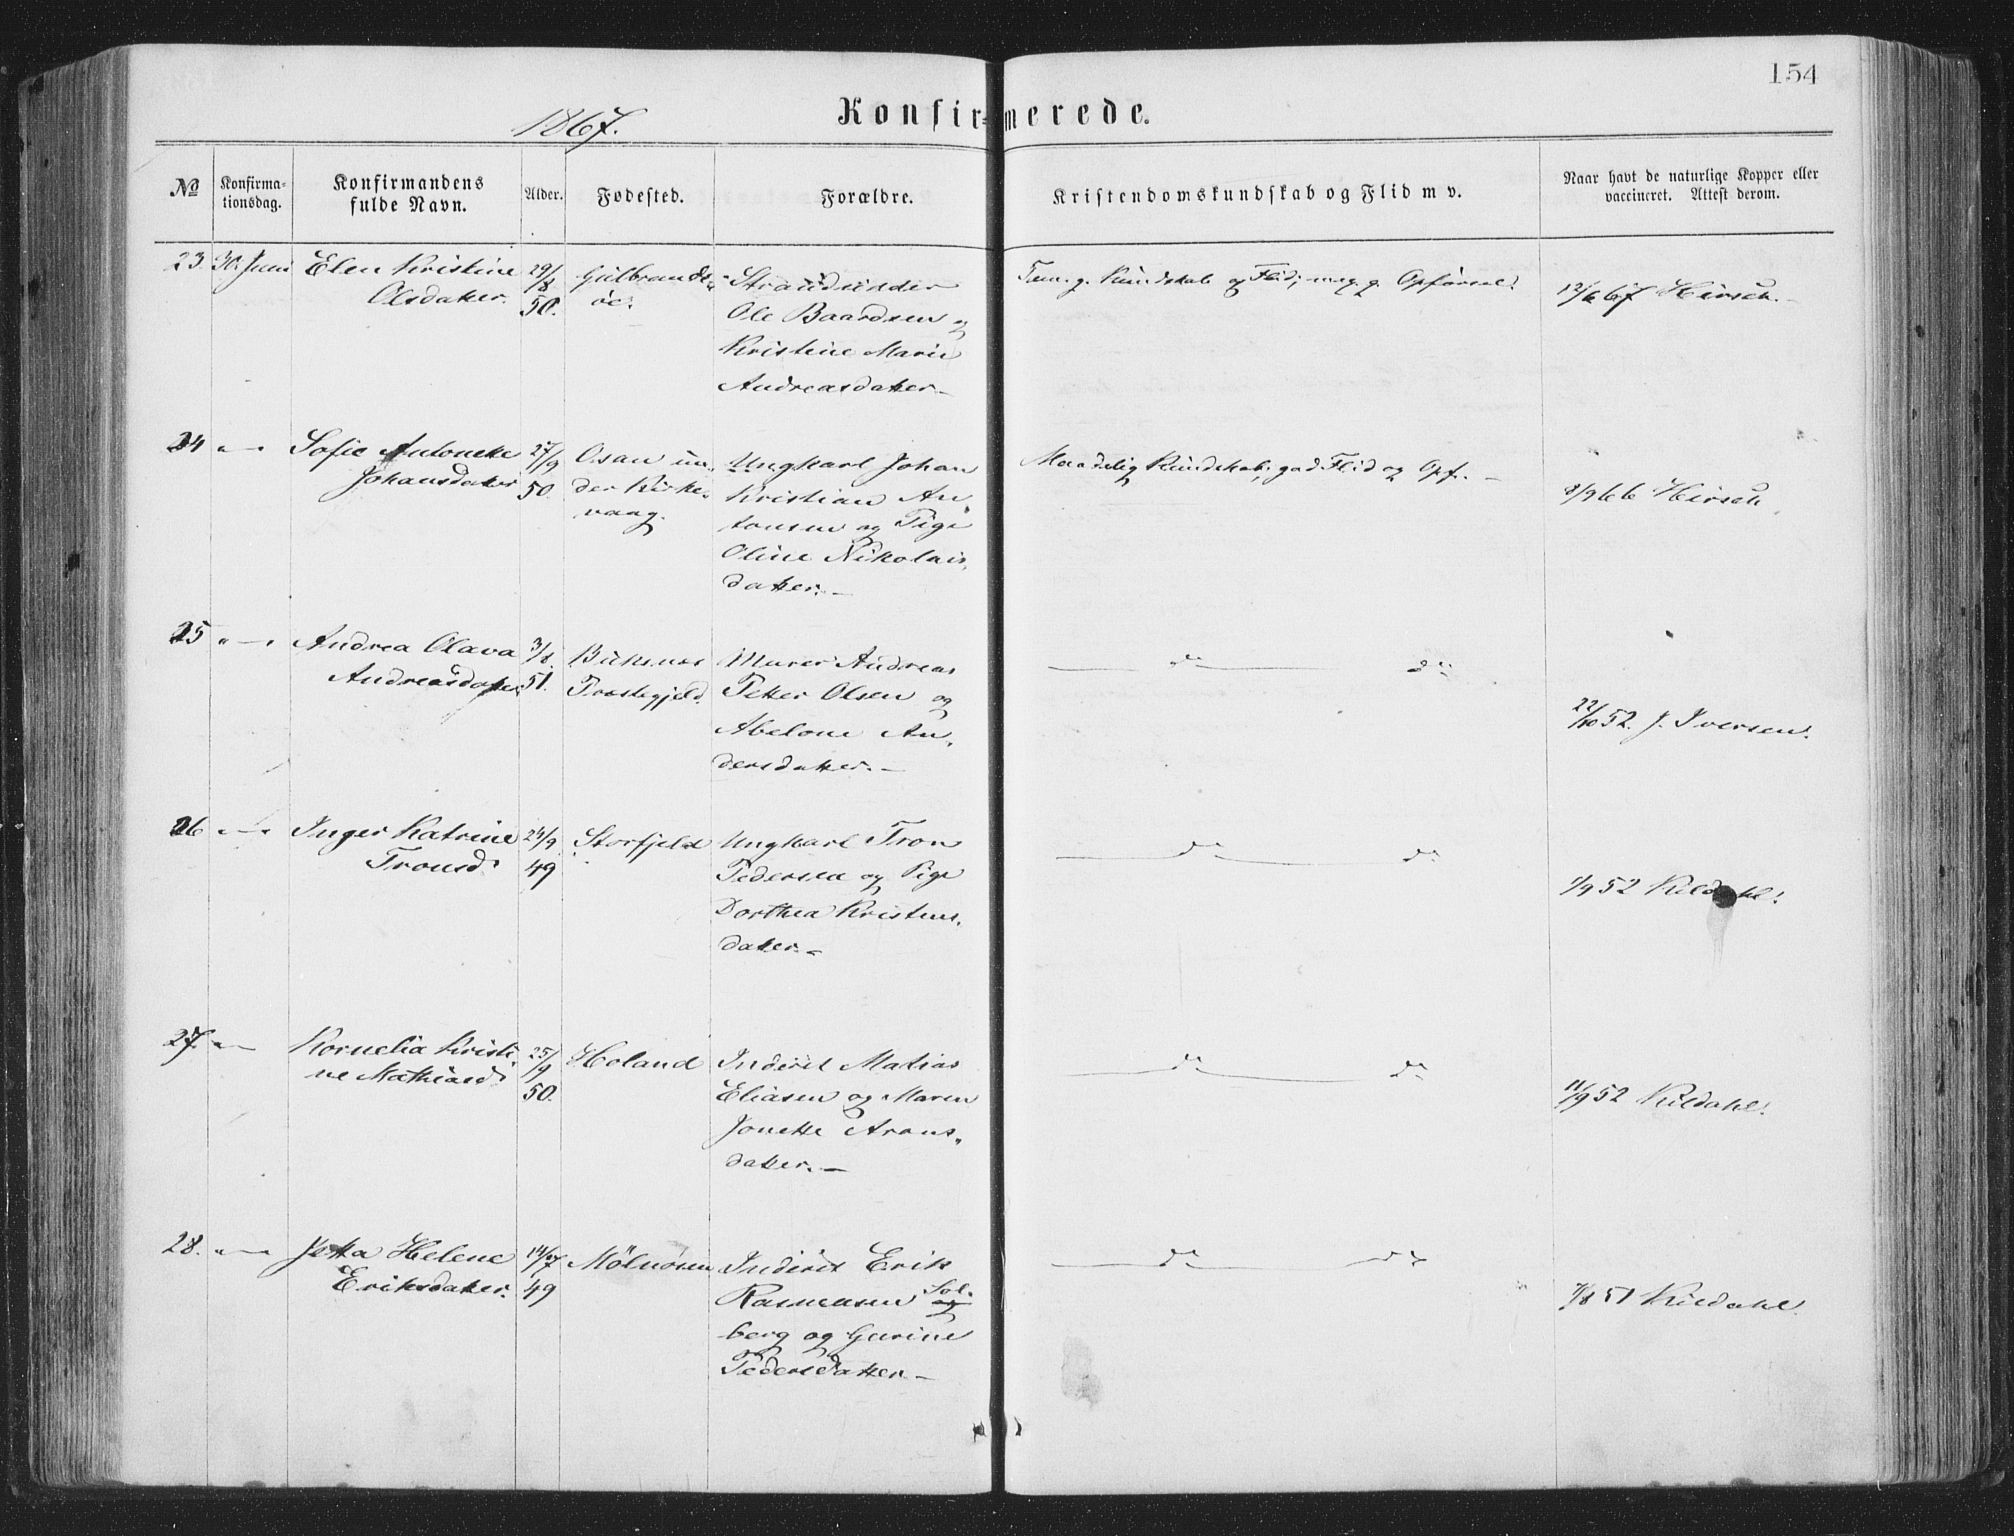 154
1867.
Konfirmerede.
No
Konfirma-
tionsdag.
Konfirmandens
fulde Navn.
Alder.
Fødested.
Forældre.
Kristendomskundskab og Flid m v.
Naar havt de naturlige Kopper eller
vaccineret. Attest derom.
23. 30. Juni Elen Kristine
Olsdatter.
29/8
50.
Gulbrands-
øe.
Strandsidder
Ole Baardsen og
Kristine Marie
Andreasdatter
Tem. g. Kundskab og Flid; meg. g. Opførsel.
12/6 67 Hirsch.
24 " — Sofie Antonette
Johansdatter
27/9
50.
Osan un-
der Kirke-
vaag.
Ungkarl Johan
Kristian An
tonsen og Pige
Oline Nikolais-
datter. —
Maadelig Kundskab, god Flid og Opf. —
8/9 66 Hirsch.
25 " — Andrea Olava
Andreasdatter
3/8
51.
Buksnes
Prestegjeld.
Murer Andreas
Petter Olsen og
Abelone An-
dersdatter. —
do do
22/10 52. J. Iversen.
26 " — Inger Katrine
Tronsd.
24/9
49
Storfjeld
Ungkarl Tron
Pedersen og Pige
Dorthea Kristens-
datter. —
do do
1/9 52 Kildahl.
27. " — Kornelia Kristi-
ne Mathiasd.
25/9
50.
Holand
Inderst Matias
Eliasen og Maren
Jonette Arons-
datter. —
do do
11/9 52 Kildahl.
28. " — Jetta Helene
Eriksdatter.
14/7
49
Mölnösen
Inderst Erik
Rasmusen Sol-
berg og Gurine
Pedersdatter —
do do
7/8 51 Kildahl.